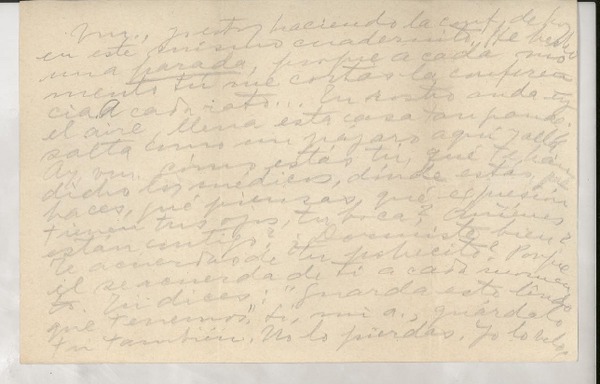 Vm., y estoy haciendo la conf. de
en este mismo cuadernito. He hecho
una parada, porque a cada mo
mento tú me cortas la conferen
cia. A cada rato... Tu rostro anda en
el aire llena esta casa tan panda.
salta como un pájaro aquí y allá
Ay vm. cómo estás tú, qué te han
dicho los médicos, dónde estás, qé
haces, qué piensas, qué expresión
tienen tus ojos, tu boca? Quiénes
están contigo? Dormiste bien?
Te acuerdas de tu pobrecito? Porque
él se acuerda de ti a cada momen
to. Tú dices: "Guarda esto lindo
que tenemos". Tú, mi a., guárdalo
tú también. No lo pierdas. Yo lo